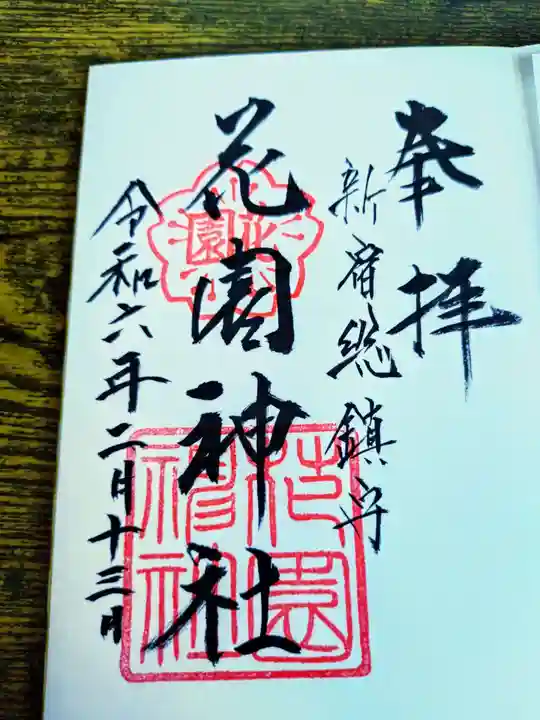 奉拝
新宿総鎮守
花園神社
令和六年二月十三日
花園
花園神社